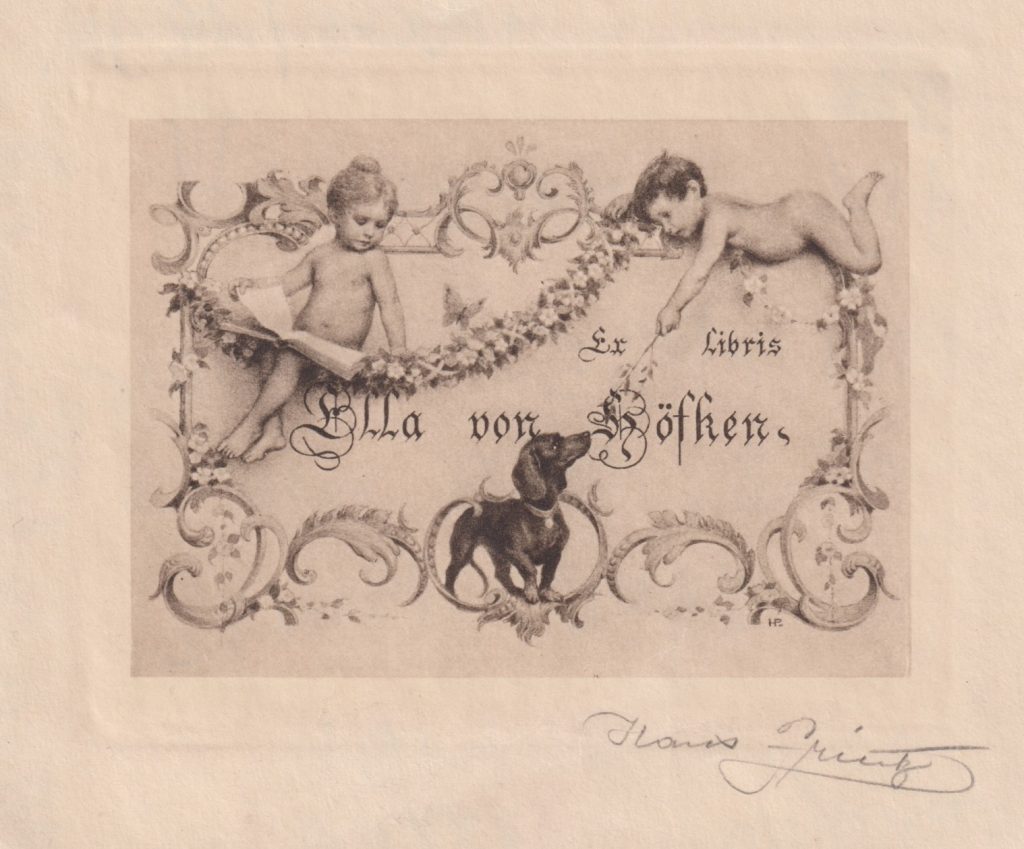 Ex libris
Ella von Höfken.
HP
Hans Printz